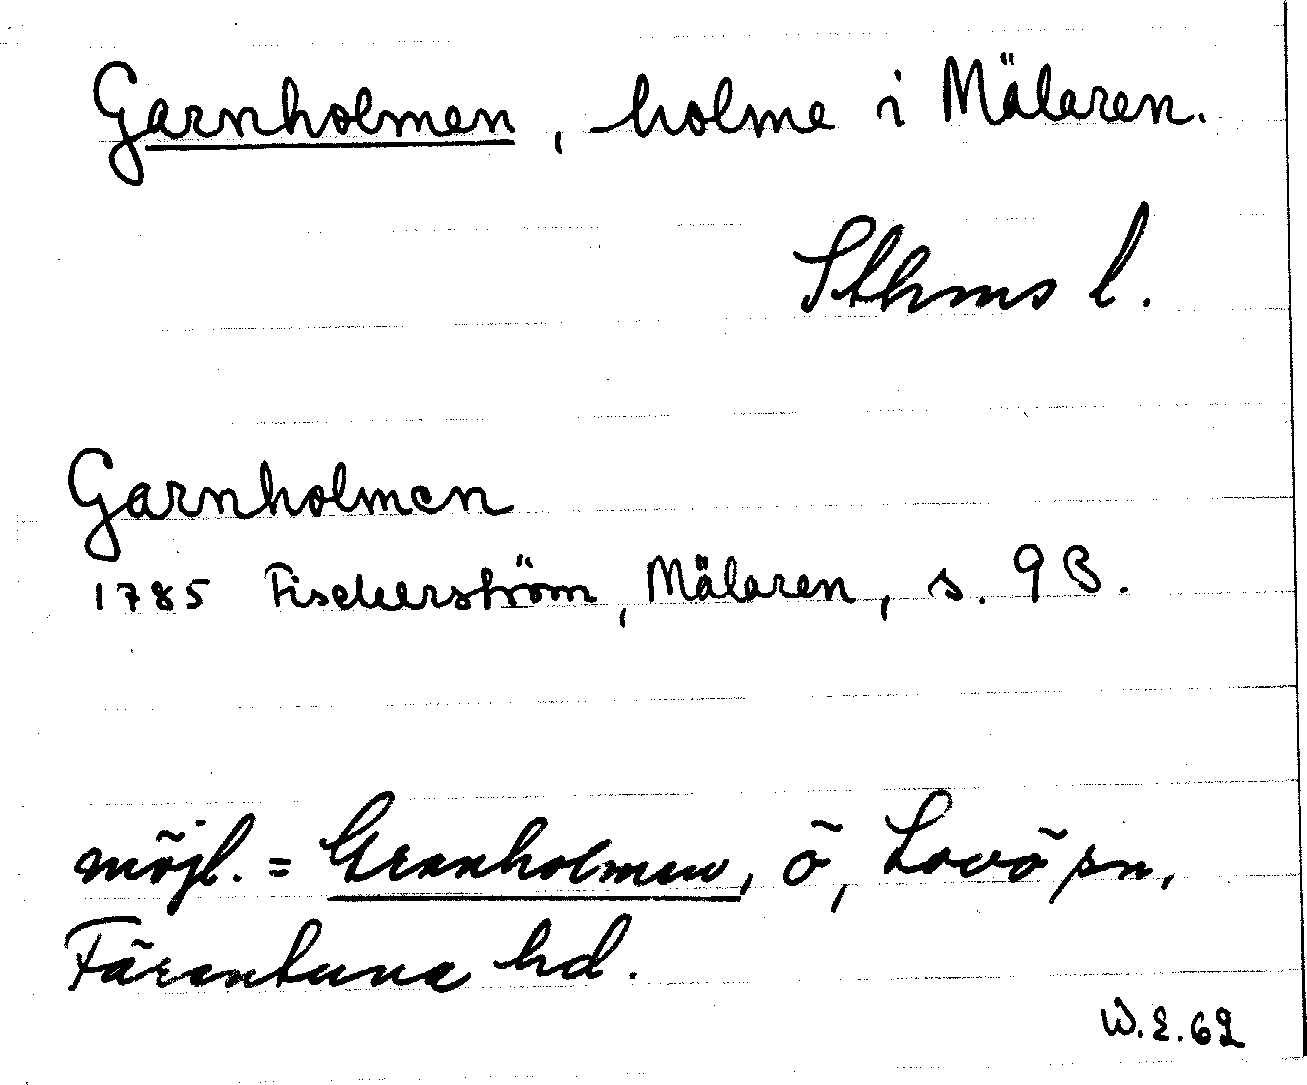 Garnholmen, holme i Mälaren.
Sthms l.
Garnholmen
1785 Fischerström, Mälaren, s. 93.
möjl. = Granholmen, ö, Lovö sn,
Färentuna hd.
W.E.62